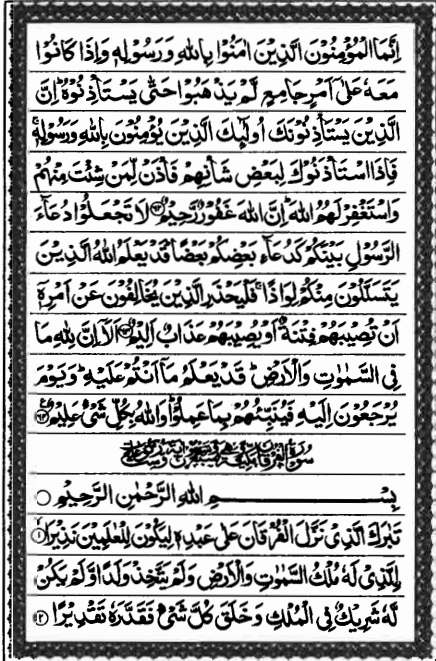 اِنَّمَا الۡمُؤۡمِنُوۡنَ الَّذِيۡنَ اٰمَنُوۡا بِاللّٰهِ وَرَسُوۡلِهٖ وَاِذَا كَانُوۡا
مَعَهٗ عَلٰٓى اَمۡرٍ جَامِعٍ لَّمۡ يَذۡهَبُوۡا حَتّٰى يَسۡتَاۡذِنُوۡهُ ؕ اِنَّ
الَّذِيۡنَ يَسۡتَاۡذِنُوۡنَكَ اُولٰٓٮِٕكَ الَّذِيۡنَ يُؤۡمِنُوۡنَ بِاللّٰهِ وَرَسُوۡلِهٖ ۚ
فَاِذَا اسۡتَاۡذَنُوۡكَ لِبَعۡضِ شَاۡنِهِمۡ فَاۡذَنۡ لِّمَنۡ شِئۡتَ مِنۡهُمۡ
وَاسۡتَغۡفِرۡ لَهُمُ اللّٰهَ ؕ اِنَّ اللّٰهَ غَفُوۡرٌ رَّحِيۡمٌ ﴿۶۲﴾ لَا تَجۡعَلُوۡا دُعَآءَ
الرَّسُوۡلِ بَيۡنَكُمۡ كَدُعَآءِ بَعۡضِكُمۡ بَعۡضًا ؕ قَدۡ يَعۡلَمُ اللّٰهُ الَّذِيۡنَ
يَتَسَلَّلُوۡنَ مِنۡكُمۡ لِوَاذًا ۚ فَلۡيَحۡذَرِ الَّذِيۡنَ يُخَالِفُوۡنَ عَنۡ اَمۡرِهٖۤ
اَنۡ تُصِيۡبَهُمۡ فِتۡنَةٌ اَوۡ يُصِيۡبَهُمۡ عَذَابٌ اَلِيۡمٌ ﴿۶۳﴾ اَلَاۤ اِنَّ لِلّٰهِ مَا
فِى السَّمٰوٰتِ وَالۡاَرۡضِ ؕ قَدۡ يَعۡلَمُ مَاۤ اَنۡتُمۡ عَلَيۡهِ ؕ وَيَوۡمَ
يُرۡجَعُوۡنَ اِلَيۡهِ فَيُنَبِّئُهُمۡ بِمَا عَمِلُوۡا ؕ وَاللّٰهُ بِكُلِّ شَىۡءٍ عَلِيۡمٌ ﴿۶۴﴾
سُوۡرَةُ الۡفُرۡقَانِ مَكِّيَّةٌ
بِسۡمِ اللّٰهِ الرَّحۡمٰنِ الرَّحِيۡمِ
تَبٰرَكَ الَّذِىۡ نَزَّلَ الۡفُرۡقَانَ عَلٰى عَبۡدِهٖ لِيَكُوۡنَ لِلۡعٰلَمِيۡنَ نَذِيۡرَا ﴿۱﴾
اۨلَّذِىۡ لَهٗ مُلۡكُ السَّمٰوٰتِ وَالۡاَرۡضِ وَلَمۡ يَتَّخِذۡ وَلَدًا وَّلَمۡ يَكُنۡ
لَّهٗ شَرِيۡكٌ فِى الۡمُلۡكِ وَخَلَقَ كُلَّ شَىۡءٍ فَقَدَّرَهٗ تَقۡدِيۡرًا ﴿۲﴾